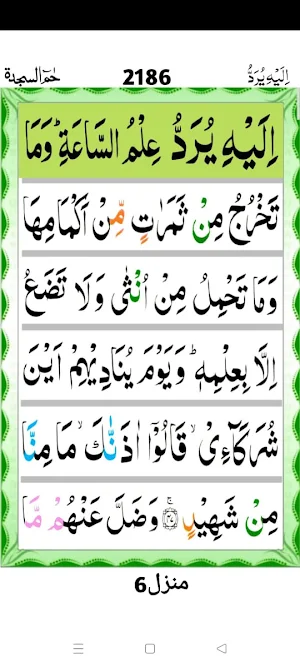 اِلَيْهِ يُرَدُّ 2186 حٰمٓ السجدة
اِلَيْهِ يُرَدُّ عِلْمُ السَّاعَةِ ؕ وَمَا
تَخْرُجُ مِنْ ثَمَرٰتٍ مِّنْ اَكْمَامِهَا
وَمَا تَحْمِلُ مِنْ اُنْثٰى وَلَا تَضَعُ
اِلَّا بِعِلْمِهٖ ؕ وَيَوْمَ يُنَادِيْهِمْ اَيْنَ
شُرَكَآءِىْ ۙ قَالُوْۤا اٰذَنّٰكَ ۙ مَا مِنَّا
مِنْ شَهِيْدٍ ۚ‏﴿۴۷﴾ وَضَلَّ عَنْهُمْ مَّا
منزل6